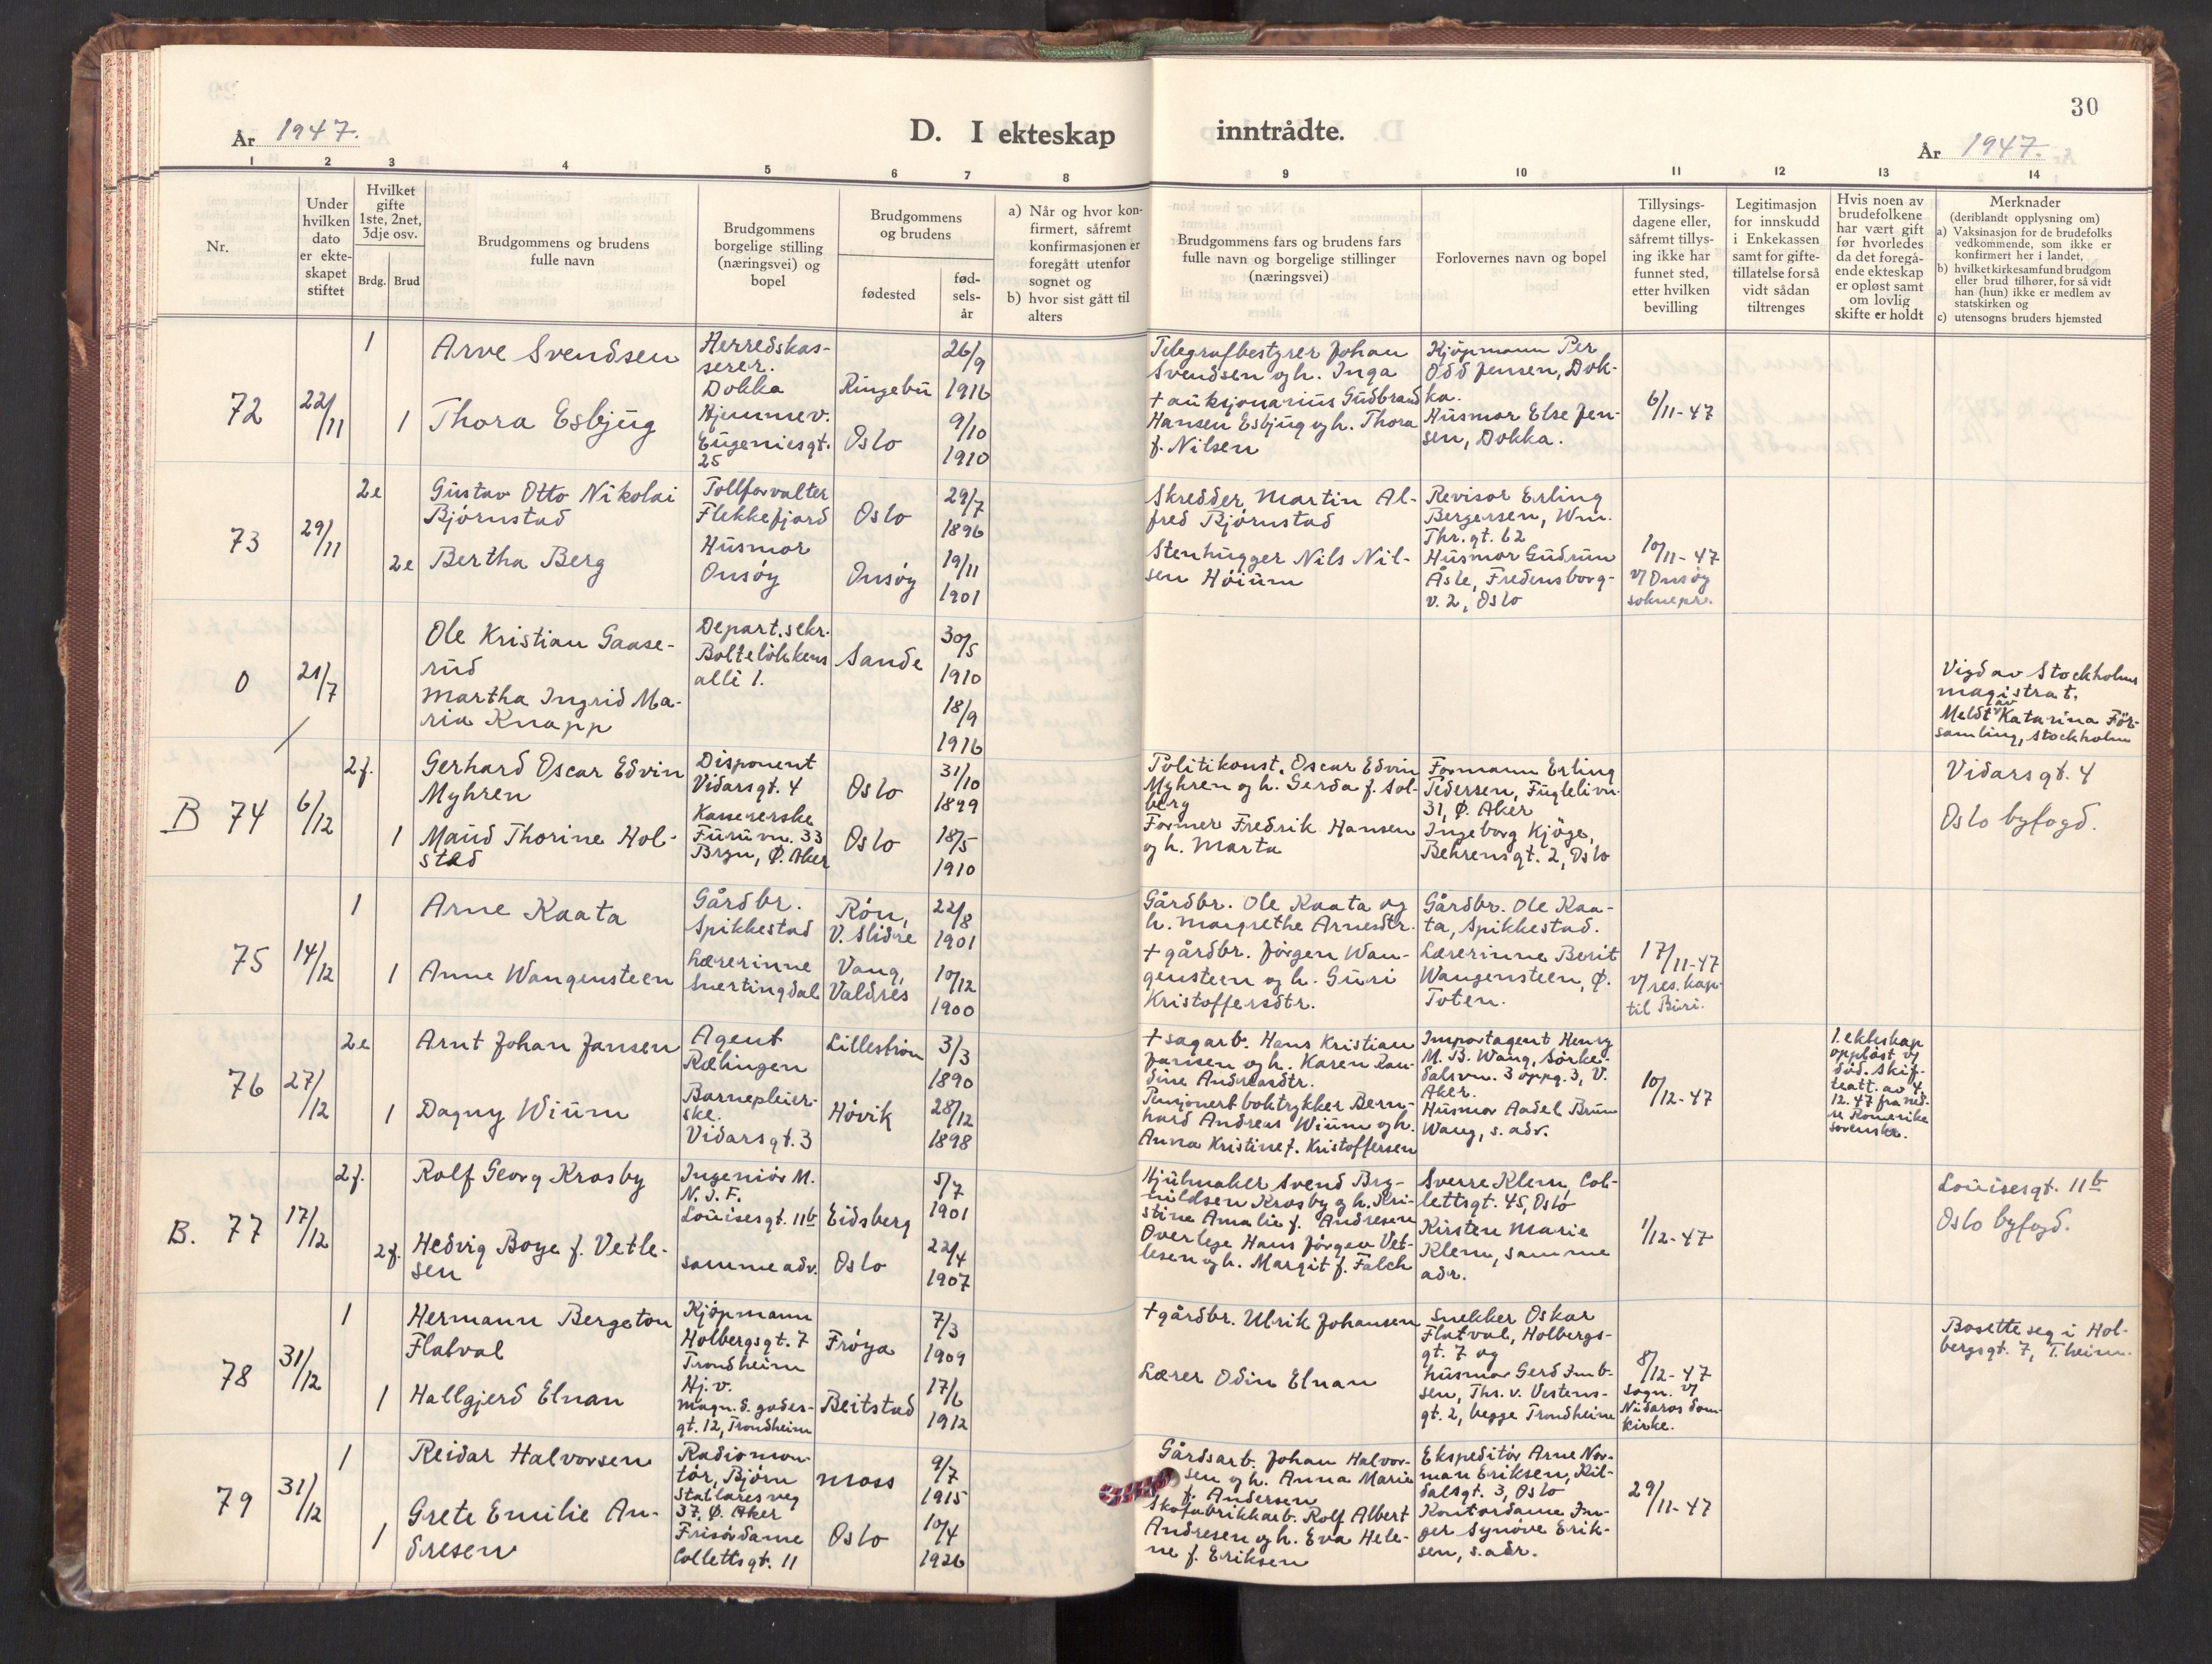 30
År 1947.
D. I ekteskap inntrådte.
År 1947.
1 2 3 4 5 6 7 8 9 10 11 12 13 14
Nr.
Under
hvilken
dato
er ekte-
skapet
stiftet
Hvilket
gifte
1ste, 2net,
3dje osv.
Brdg. Brud
Brudgommens og brudens
fulle navn
Brudgommens
borgelige stilling
(næringsvei) og
bopel
Brudgommens
og brudens
fødested
fød-
sels-
år
a) Når og hvor kon-
firmert, såfremt
konfirmasjonen er
foregått utenfor
sognet og
b) hvor sist gått til
alters
Brudgommens fars og brudens fars
fulle navn og borgelige stillinger
(næringsvei)
Forlovernes navn og bopel
Tillysings-
dagene eller,
såfremt tillys-
ing ikke har
funnet sted,
etter hvilken
bevilling
Legitimasjon
for innskudd
i Enkekassen
samt for gifte-
tillatelse for så
vidt sådan
tiltrenges
Hvis noen av
brudefolkene
har vært gift
før hvorledes
da det foregå-
ende ekteskap
er opløst samt
om lovlig
skifte er holdt
Merknader
(deriblandt opplysning om)
a) Vaksinasjon for de brudefolks
vedkommende, som ikke er
konfirmert her i landet,
b) hvilket kirkesamfund brudgom
eller brud tilhører, for så vidt
han (hun) ikke er medlem av
statskirken og
c) utensogns bruders hjemsted
72
22/11
1
Arve Svendsen
Herredskas-
serer.
Dokka
Ringebu
26/9
1916
1
Thora Esbjug
Hjemmev.
Eugeniesgt.
25
Oslo
9/10
1910
Telegrafbestyrer Johan
Svendsen og h. Inga
+ auksjonarius Gudbrand
Hansen Esbjug og h. Thora
f. Nilsen
Kjøpmann Per
Odd Jensen, Dok-
ka.
Husmor Else Jen-
sen, Dokka.
6/11-47
73
29/11
2e
Gustav Otto Nikolai
Bjørnstad
Tollforvalter
Flekkefjord
Oslo
29/7
1896
2e
Bertha Berg
Husmor
Onsøy
Onsøy
19/11
1901
Skredder Martin Al-
fred Bjørnstad
Stenhugger Nils Nil-
sen Høium
Revisor Erling
Bergersen, Wm.
Thr. gt. 62
Husmor Gudrun
Åsle, Fredensborg-
v. 2, Oslo
10/11-47
v/Onsøy
soknepr.
0
21/7
Ole Kristian Gaase-
rud
Depart.sekr.
Bolteløkkens
allé 1.
Sande
30/5
1910
Martha Ingrid Ma-
ria Knapp
18/9
1916
Vigd av Stockholms
magistrat.
Meldt av Katarina För-
samling, Stockholm
B 74
6/12
2f.
Gerhard Oscar Edvin
Myhren
Disponent
Vidarsgt. 4
Oslo
31/10
1899
1
Maud Thorine Hol-
stad
Kassererske
Furuvn. 33
Bryn, Ø. Aker
Oslo
18/5
1910
Politikonst. Oscar Edvin
Myhren og h. Gerda f. Sol-
berg
Former Fredrik Hansen
og h. Marta
Formann Erling
Pedersen, Fuglelivn.
31, Ø. Aker
Ingeborg Kjøge,
Behrensgt. 2, Oslo
Vidarsgt. 4
Oslo byfogd.
75
14/12
1
Arne Kaata
Gårdbr.
Spikkestad
Røn,
V. Slidre
22/8
1901
1
Anne Wangensteen
Lærerinne
Snertingdal
Vang,
Valdres
10/12
1900
Gårdbr. Ole Kaata og
h. Margrethe Arnesdtr.
+ gårdbr. Jørgen Wan-
gensteen og h. Guri
Kristoffersdtr.
Gårdbr. Ole Kaa-
ta, Spikkestad.
Lærerinne Berit
Wangensteen, Ø.
Toten.
17/11-47
v/res. kap.
til Biri.
76
27/12
2e
Arnt Johan Jansen
Agent
Rælingen
Lillestrøm
3/3
1890
1
Dagny Wium
Barnepleier-
ske.
Vidarsgt. 3
Høvik
28/12
1898
+ sagarb. Hans Kristian
Jansen og h. Karen Ran-
dine Andreasdtr.
Pensjonert boktrykker Bern-
hard Andreas Wium og h.
Anna Kristine f. Kristoffersen
Importagent Henry
M. B. Wang, Sørke-
dalsvn. 3 oppg. 3, V.
Aker.
Husmor Aadel Brun
Wang, s. adr.
10/12-47
1. ekteskap
oppløst v/
død. Skif-
teatt. av 4.
12.47 fra ned-
re Romerike
sorenskr.
B. 77
17/12
2f.
Rolf Georg Krosby
Ingeniør M.
N.I.F.
Louisesgt. 11b
Eidsberg
5/7
1901
2f.
Hedvig Boye f. Vetle-
sen
samme adr.
Oslo
22/4
1907
Hjulmaker Svend Bry-
nildsen Krosby og h. Kri-
stine Amalie f. Andresen
Overlege Hans Jørgen Vet-
lesen og h. Margit f. Falch
Sverre Klem, Col-
lettsgt. 45, Oslo
Kirsten Marie
Klem, samme
adr.
1/12-47
Louisesgt. 11b
Oslo byfogd.
78
31/12
1
Hermann Bergeton
Flatval
Kjøpmann
Holbergsgt. 7
Trondheim
Frøya
7/3
1909
1
Hallgjerd Elnan
Hj.v.
Magn. d. godes-
gt. 12, Trondheim
Beitstad
17/6
1912
+ gårdbr. Ulrik Johansen
Lærer Odin Elnan
Snekker Oskar
Flatval, Holbergs-
gt. 7 og
husmor Gerd Imb-
sen, Ths. v. Vestens-
gt. 2, begge Trondheim
8/12-47
sogn. v/
Nidaros dom-
kirke.
Bosette seg i Hol-
bergsgt. 7, T.heim.
79
31/12
1
Reidar Halvorsen
Radiomon-
tør, Bjørn
Stallaresveg
37, Ø. Aker
Moss
9/7
1915
1
Grete Emilie An-
dresen
Frisørdame
Collettsgt. 11
Oslo
10/4
1926
Gårdsarb. Johan Halvor-
sen og h. Anna Marie
f. Andersen
Skofabrikkarb. Rolf Albert
Andresen og h. Eva Hele-
ne f. Eriksen
Ekspeditør Arne Nor-
man Eriksen, Kil-
dalsgt. 3, Oslo
Kontordame In-
ger Synøve Erik-
sen, s. adr.
29/11-47